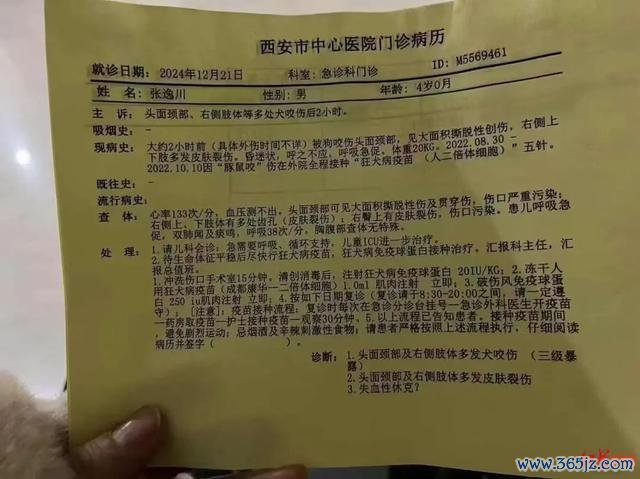 西安市中心医院门诊病历
就诊日期: 2024年12月21日 科室: 急诊科门诊 ID: M5569461
姓 名: 张逸川 性别: 男 年龄: 4岁0月
主 诉: 头面颈部、右侧肢体等多处犬咬伤后2小时。
吸烟史: -
现病史: 大约2小时前（具体外伤时间不详）被狗咬伤头面颈部，见大面积撕脱性创伤，右侧上
下肢多发皮肤裂伤。昏迷状，呼之不应，呼吸急促。体重20KG。2022.08.30 -
2022.10.10因“豚鼠咬”伤在外院全程接种“狂犬病疫苗 （人二倍体细胞）”五针。
既往史: -
流行病史:
查 体: 心率133次/分，血压测不出。头面颈部可见大面积撕脱性伤及贯穿伤，伤口严重污染；
右侧上、下肢体有多处齿孔（皮肤裂伤）；右臀上有皮肤裂伤，伤口污染。患儿呼吸急
促，双肺闻及痰鸣，呼吸38次/分，胸腹部查体无特殊。
处 理: 1.请儿科会诊：急需要呼吸、循环支持，儿童ICU进一步治疗。
2.待生命体征平稳后尽快行狂犬病疫苗、狂犬病免疫球蛋白接种治疗。汇报科主任，汇
报总值班。
1.冲洗伤口手术室15分钟，清创消毒后，注射狂犬病免疫球蛋白 20IU/KG；2.冻干人
用狂犬病疫苗（成都康华—二倍体细胞）1.0ml 肌肉注射 立即；3.破伤风免疫球蛋
白 250 iu肌肉注射 立即；4.按如下日期复诊（复诊请于8:30-20:00之间，请一定遵
守）；[注意]：疫苗接种流程：复诊时每次在急诊分诊台挂号—急诊外科医生开疫苗
—药房取疫苗—护士接种疫苗—观察30分钟。5.以上流程已告知患者。接种疫苗期间
，避免剧烈运动；忌烟酒及辛辣刺激性食物；请患者严格按照上述流程执行，仔细阅读
病历并签字（ ）。
诊断: 1.头面颈部及右侧肢体多发犬咬伤 （三级暴
露）
2.头面颈部及右侧肢体多发皮肤裂伤
3.失血性休克？
www.365jz.com